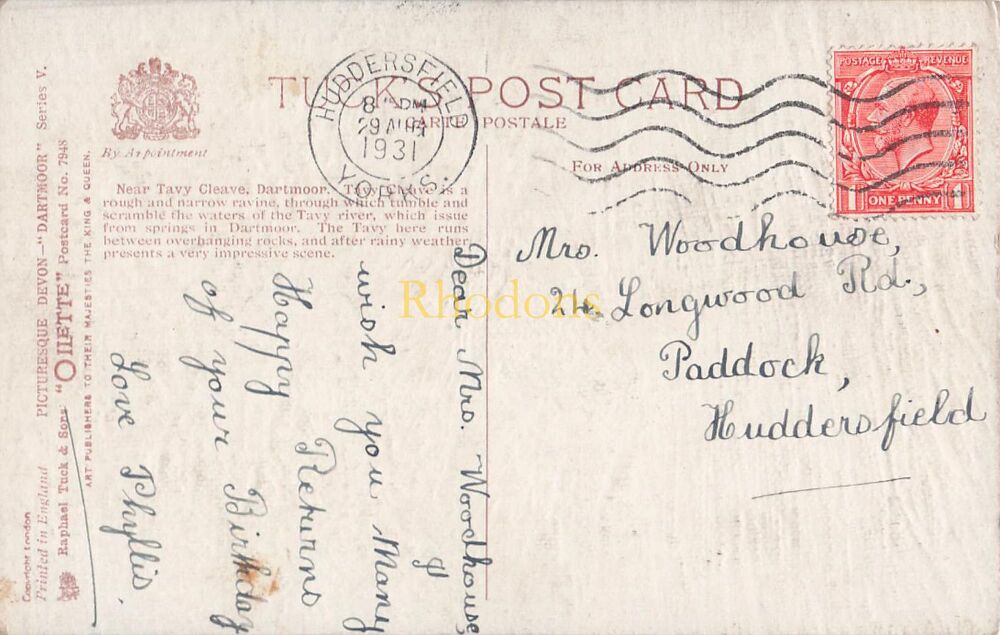 TUCK'S POST CARD
CARTE POSTALE
By Appointment
FOR ADDRESS ONLY
HUDDERSFIELD
8 PM
29 AU
1931
YORKS.
POSTAGE REVENUE
1 ONE PENNY 1
Near Tavy Cleave, Dartmoor. Tavy Cleave is a
rough and narrow ravine, through which tumble and
scramble the waters of the Tavy river, which issue
from springs in Dartmoor. The Tavy here runs
between overhanging rocks, and after rainy weather
presents a very impressive scene.
Mrs. Woodhouse,
24. Longwood Rd.,
Paddock,
Huddersfield
Dear Mrs. Woodhouse,
I
wish you Many
Happy Returns
of your Birthday
Love Phyllis.
Rhodons
PICTURESQUE DEVON—"DARTMOOR" Series V.
Raphael Tuck & Sons "OILETTE" Postcard No. 7948
ART PUBLISHERS TO THEIR MAJESTIES THE KING & QUEEN.
Copyright London
Printed in England